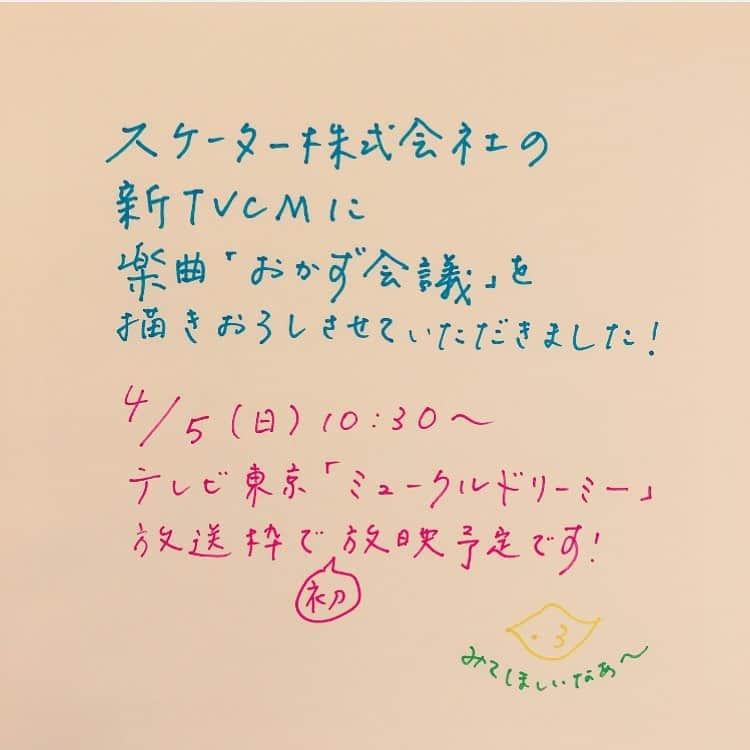 スケーター株式会社の
新TVCMに
楽曲「おかず会議」を
描きおろしさせていただきました！
4/5(日)10:30〜
テレビ東京「ミュークルドリーミー」
放送枠で放映予定です！
初
みてほしいなあ〜